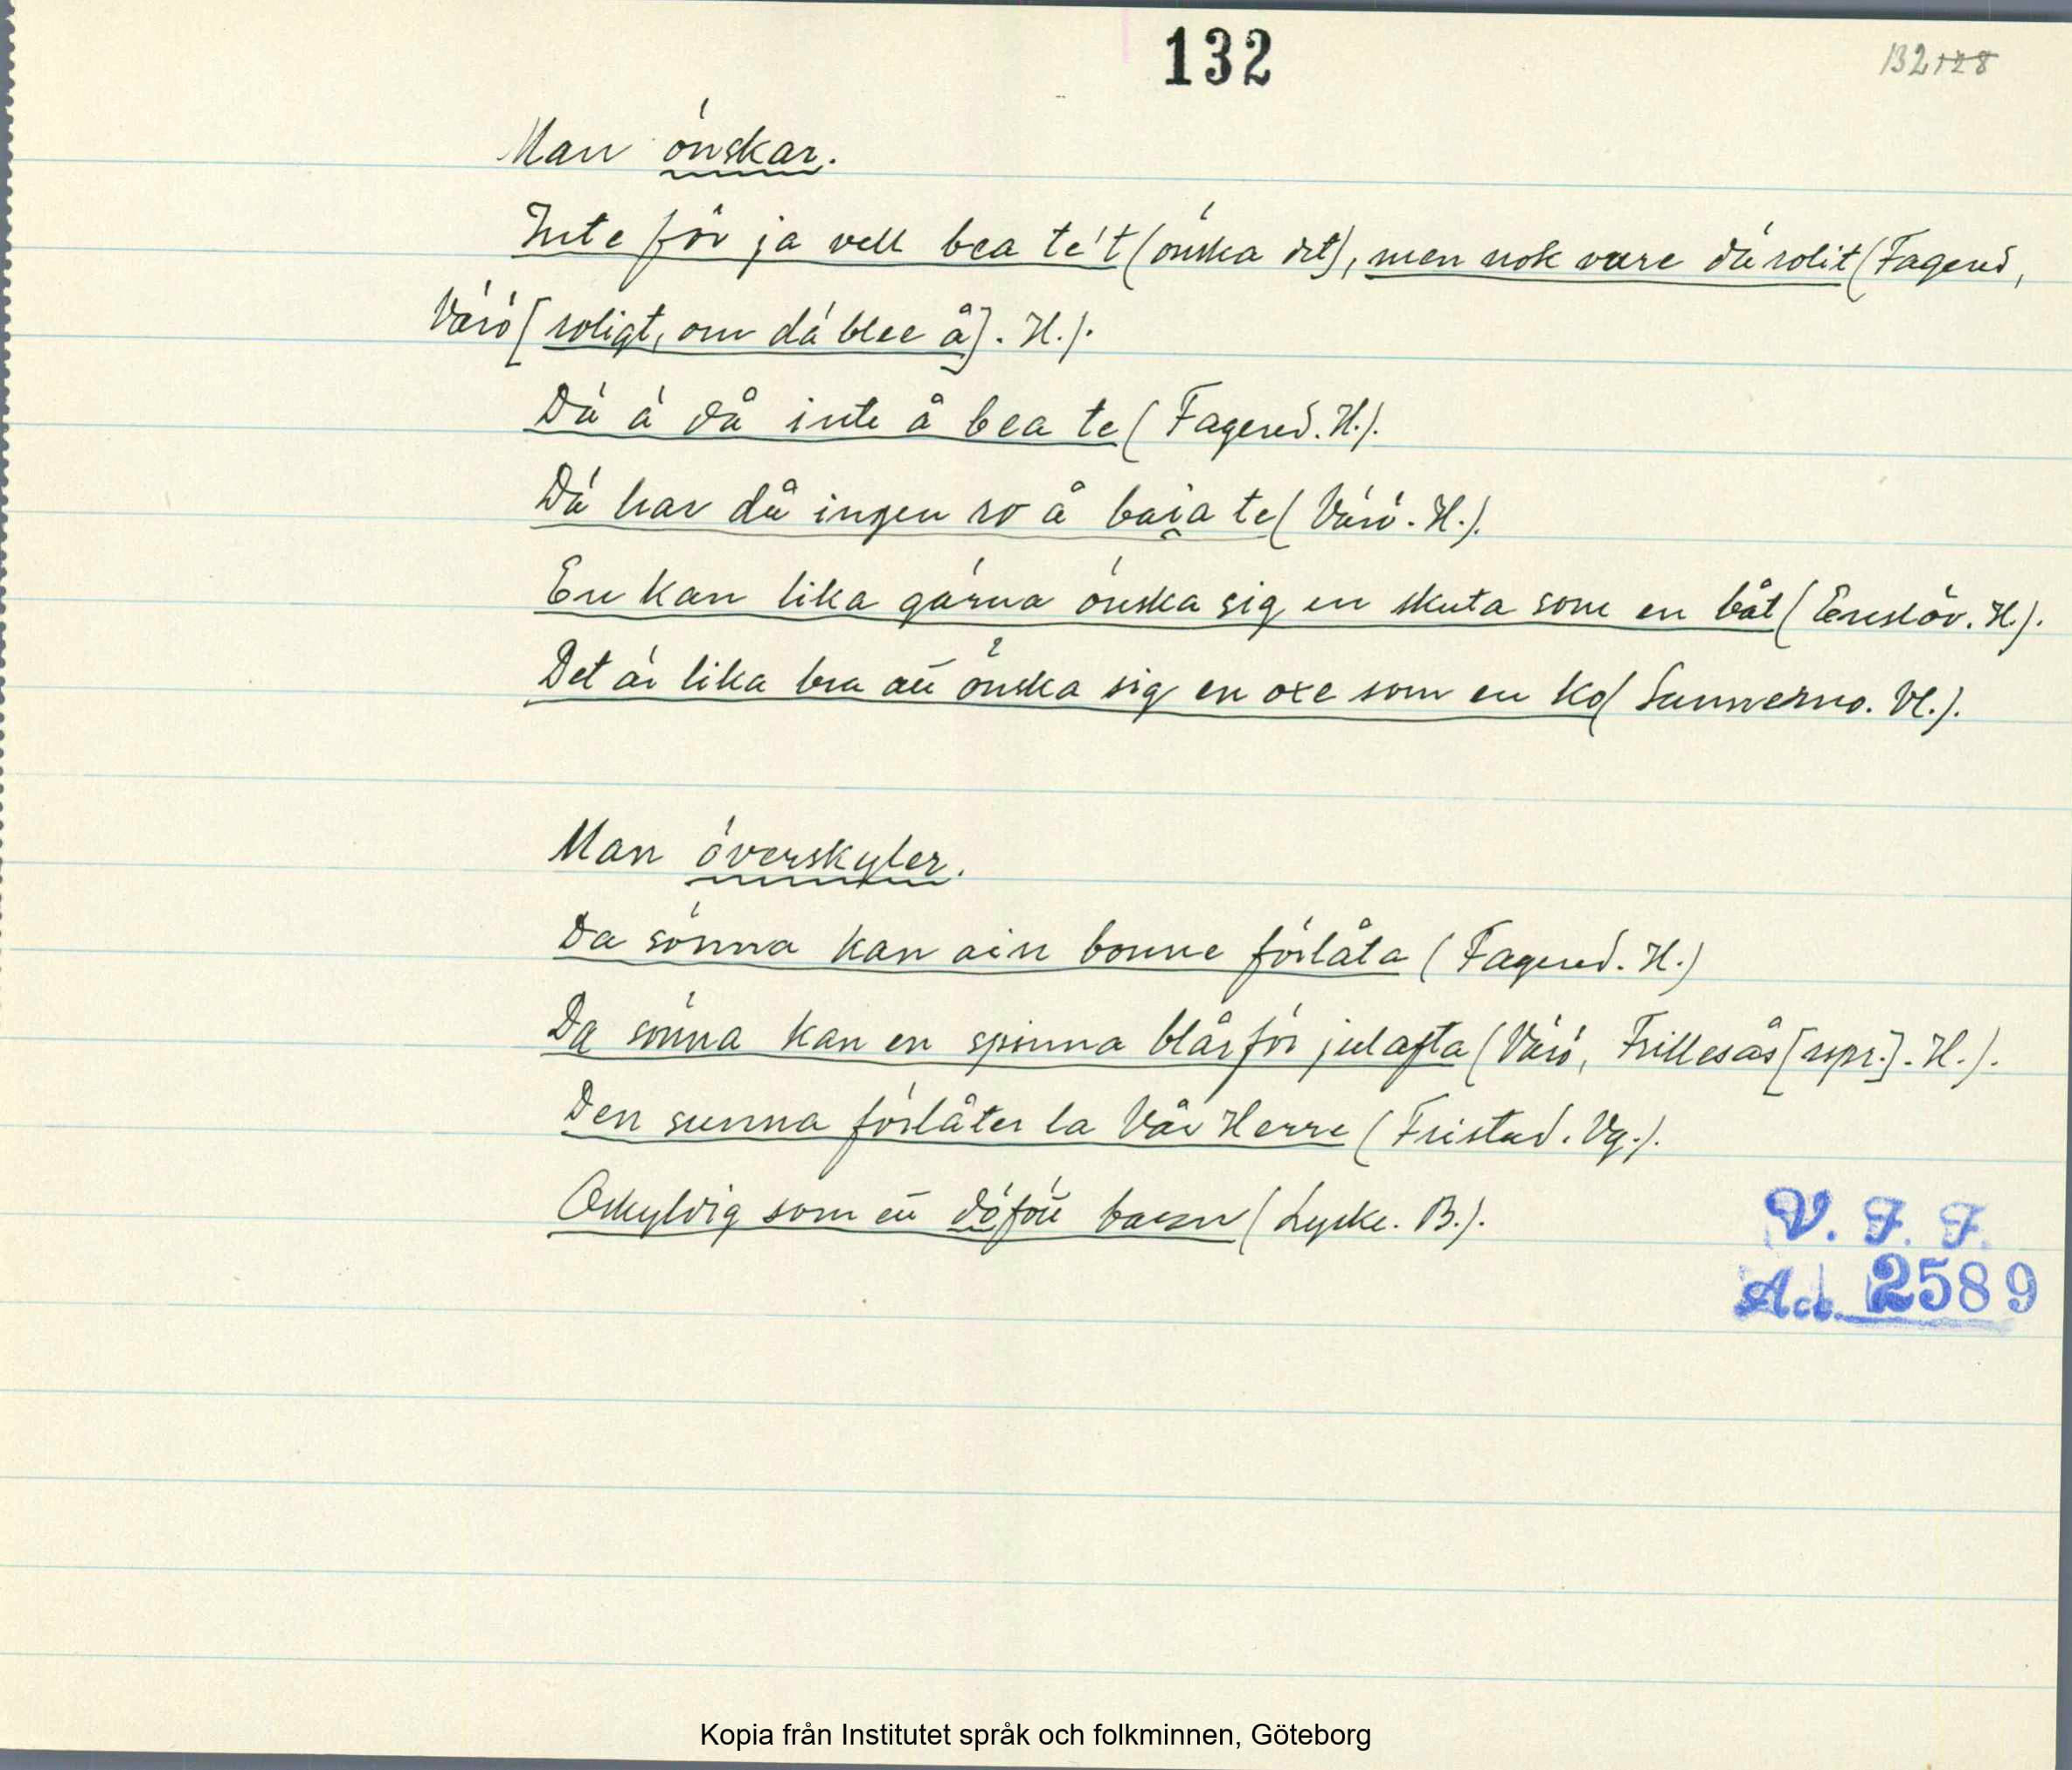 132
132 128
Man önskar.
Inte för ja vell bea te't (önska det), men nok vare dä rolit (Fagered,
Värö [roligt, om dä blee å]. H.).
Dä ä då inte å bea te (Fagered. H.).
Dä har då ingen ro å baia te (Värö. H.).
En kan lika gärna önska sig en skuta som en båt (Eneslöv. H.).
Det är lika bra au önska sig en oxe som en ko (Sunnerno. Vl.).
Man överskyler.
Da sönna kan ain bonne förlåta (Fagered. H.)
Da sönna kan en spinna blår för julafta (Värö, Frillesås [rspr.]. H.).
Den sunna förlåter la Vår Herre (Fristad. Vg.).
Oskyldig som eu döföu baern (Lycke. B.).
V. F. F.
Acc. 2589
Kopia från Institutet språk och folkminnen, Göteborg